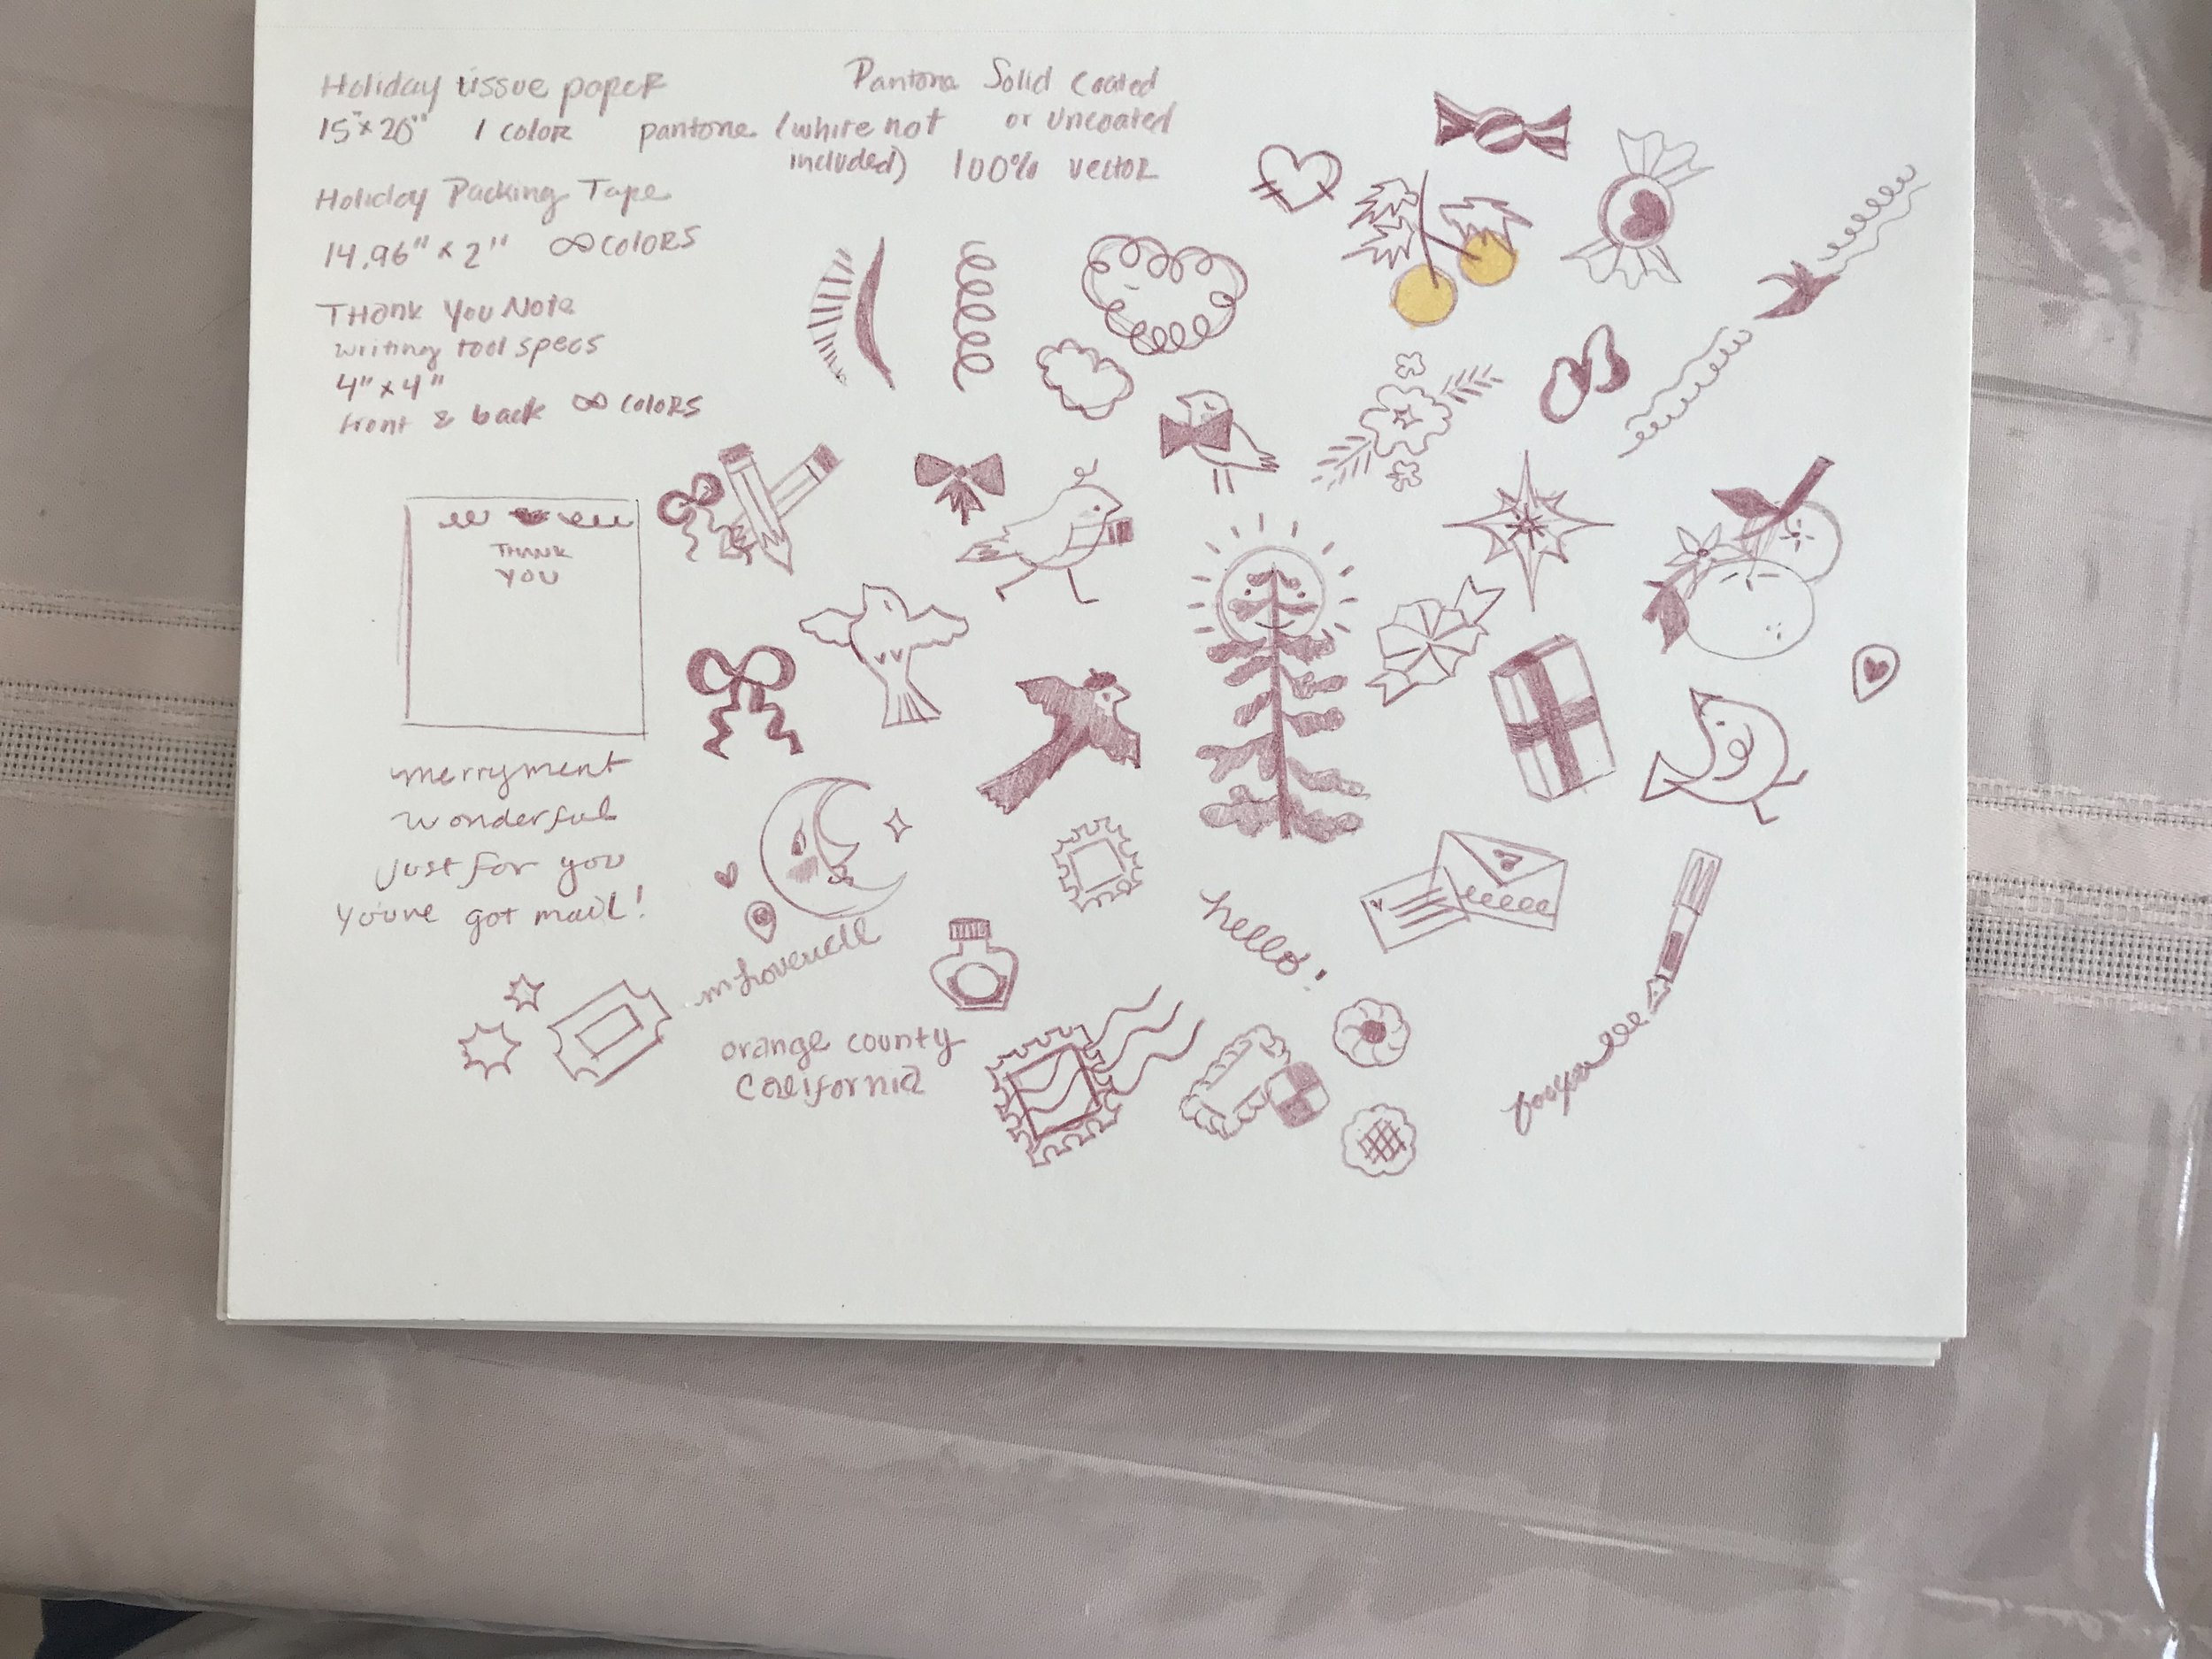 Holiday tissue paper
15" x 20" 1 color pantone (white not included)
Pantone Solid Coated
or Uncoated
100% vector
Holiday Packing Tape
14.96" x 2" ∞ colors
Thank You Note
writing tool specs
4" x 4"
front & back ∞ colors
THANK
YOU
merryment
wonderful
just for you
youve got mail!
hello!
orange county
California